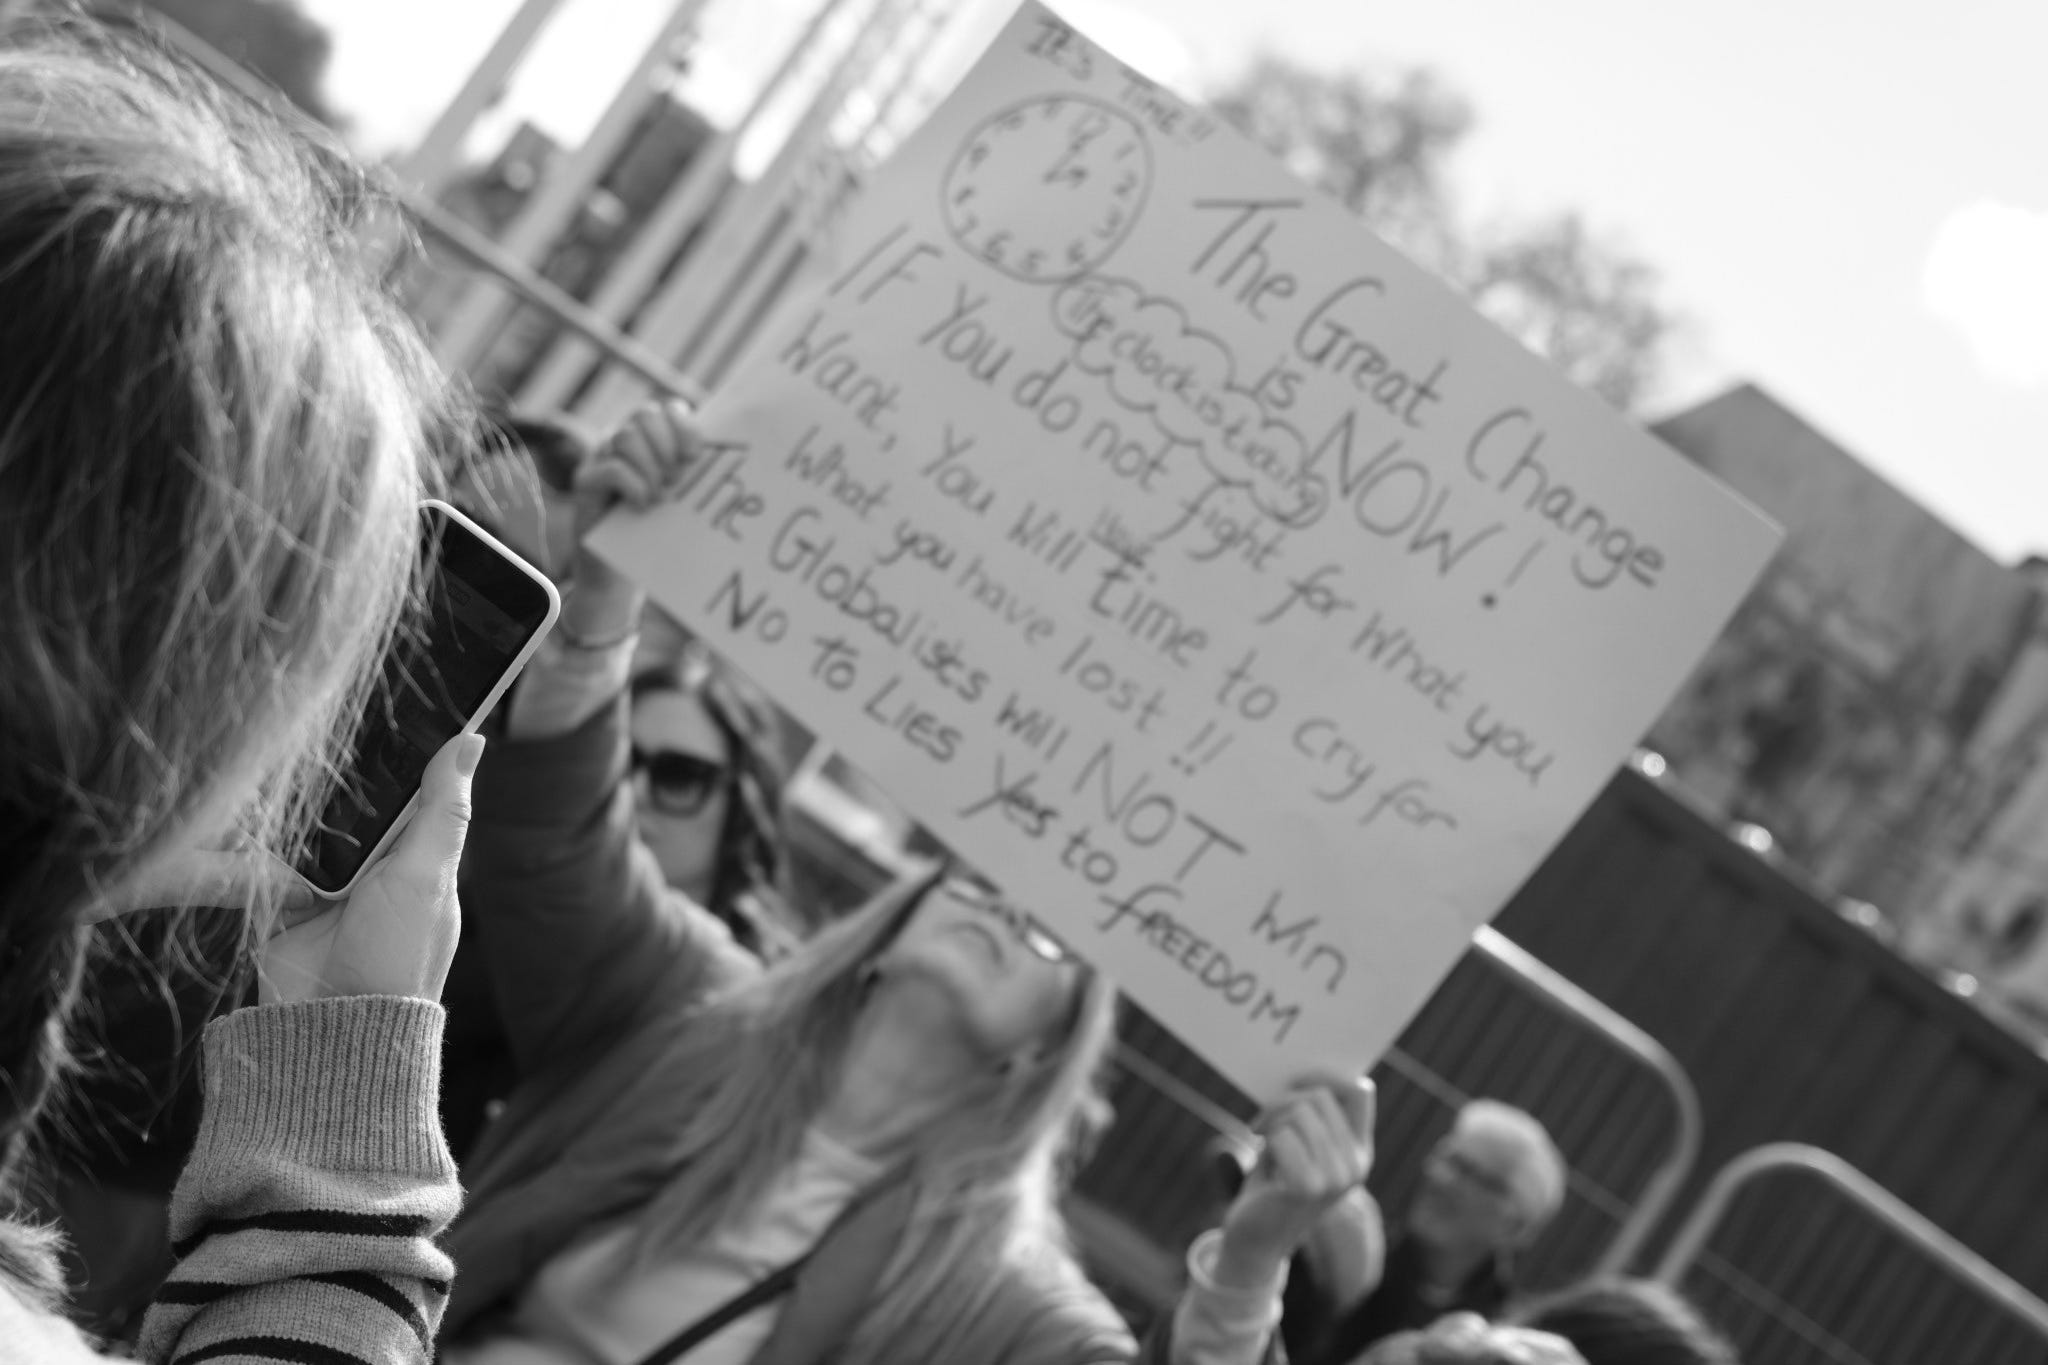 It's Time!!
11 12 1 2 3 4 5 6 7 8 9 10
The Great Change
is NOW!
The clock is ticking
IF You do not fight for What you
Want, You Will have time to cry for
What you have lost!!
The Globalists will NOT Win
No to Lies Yes to fREEDOM